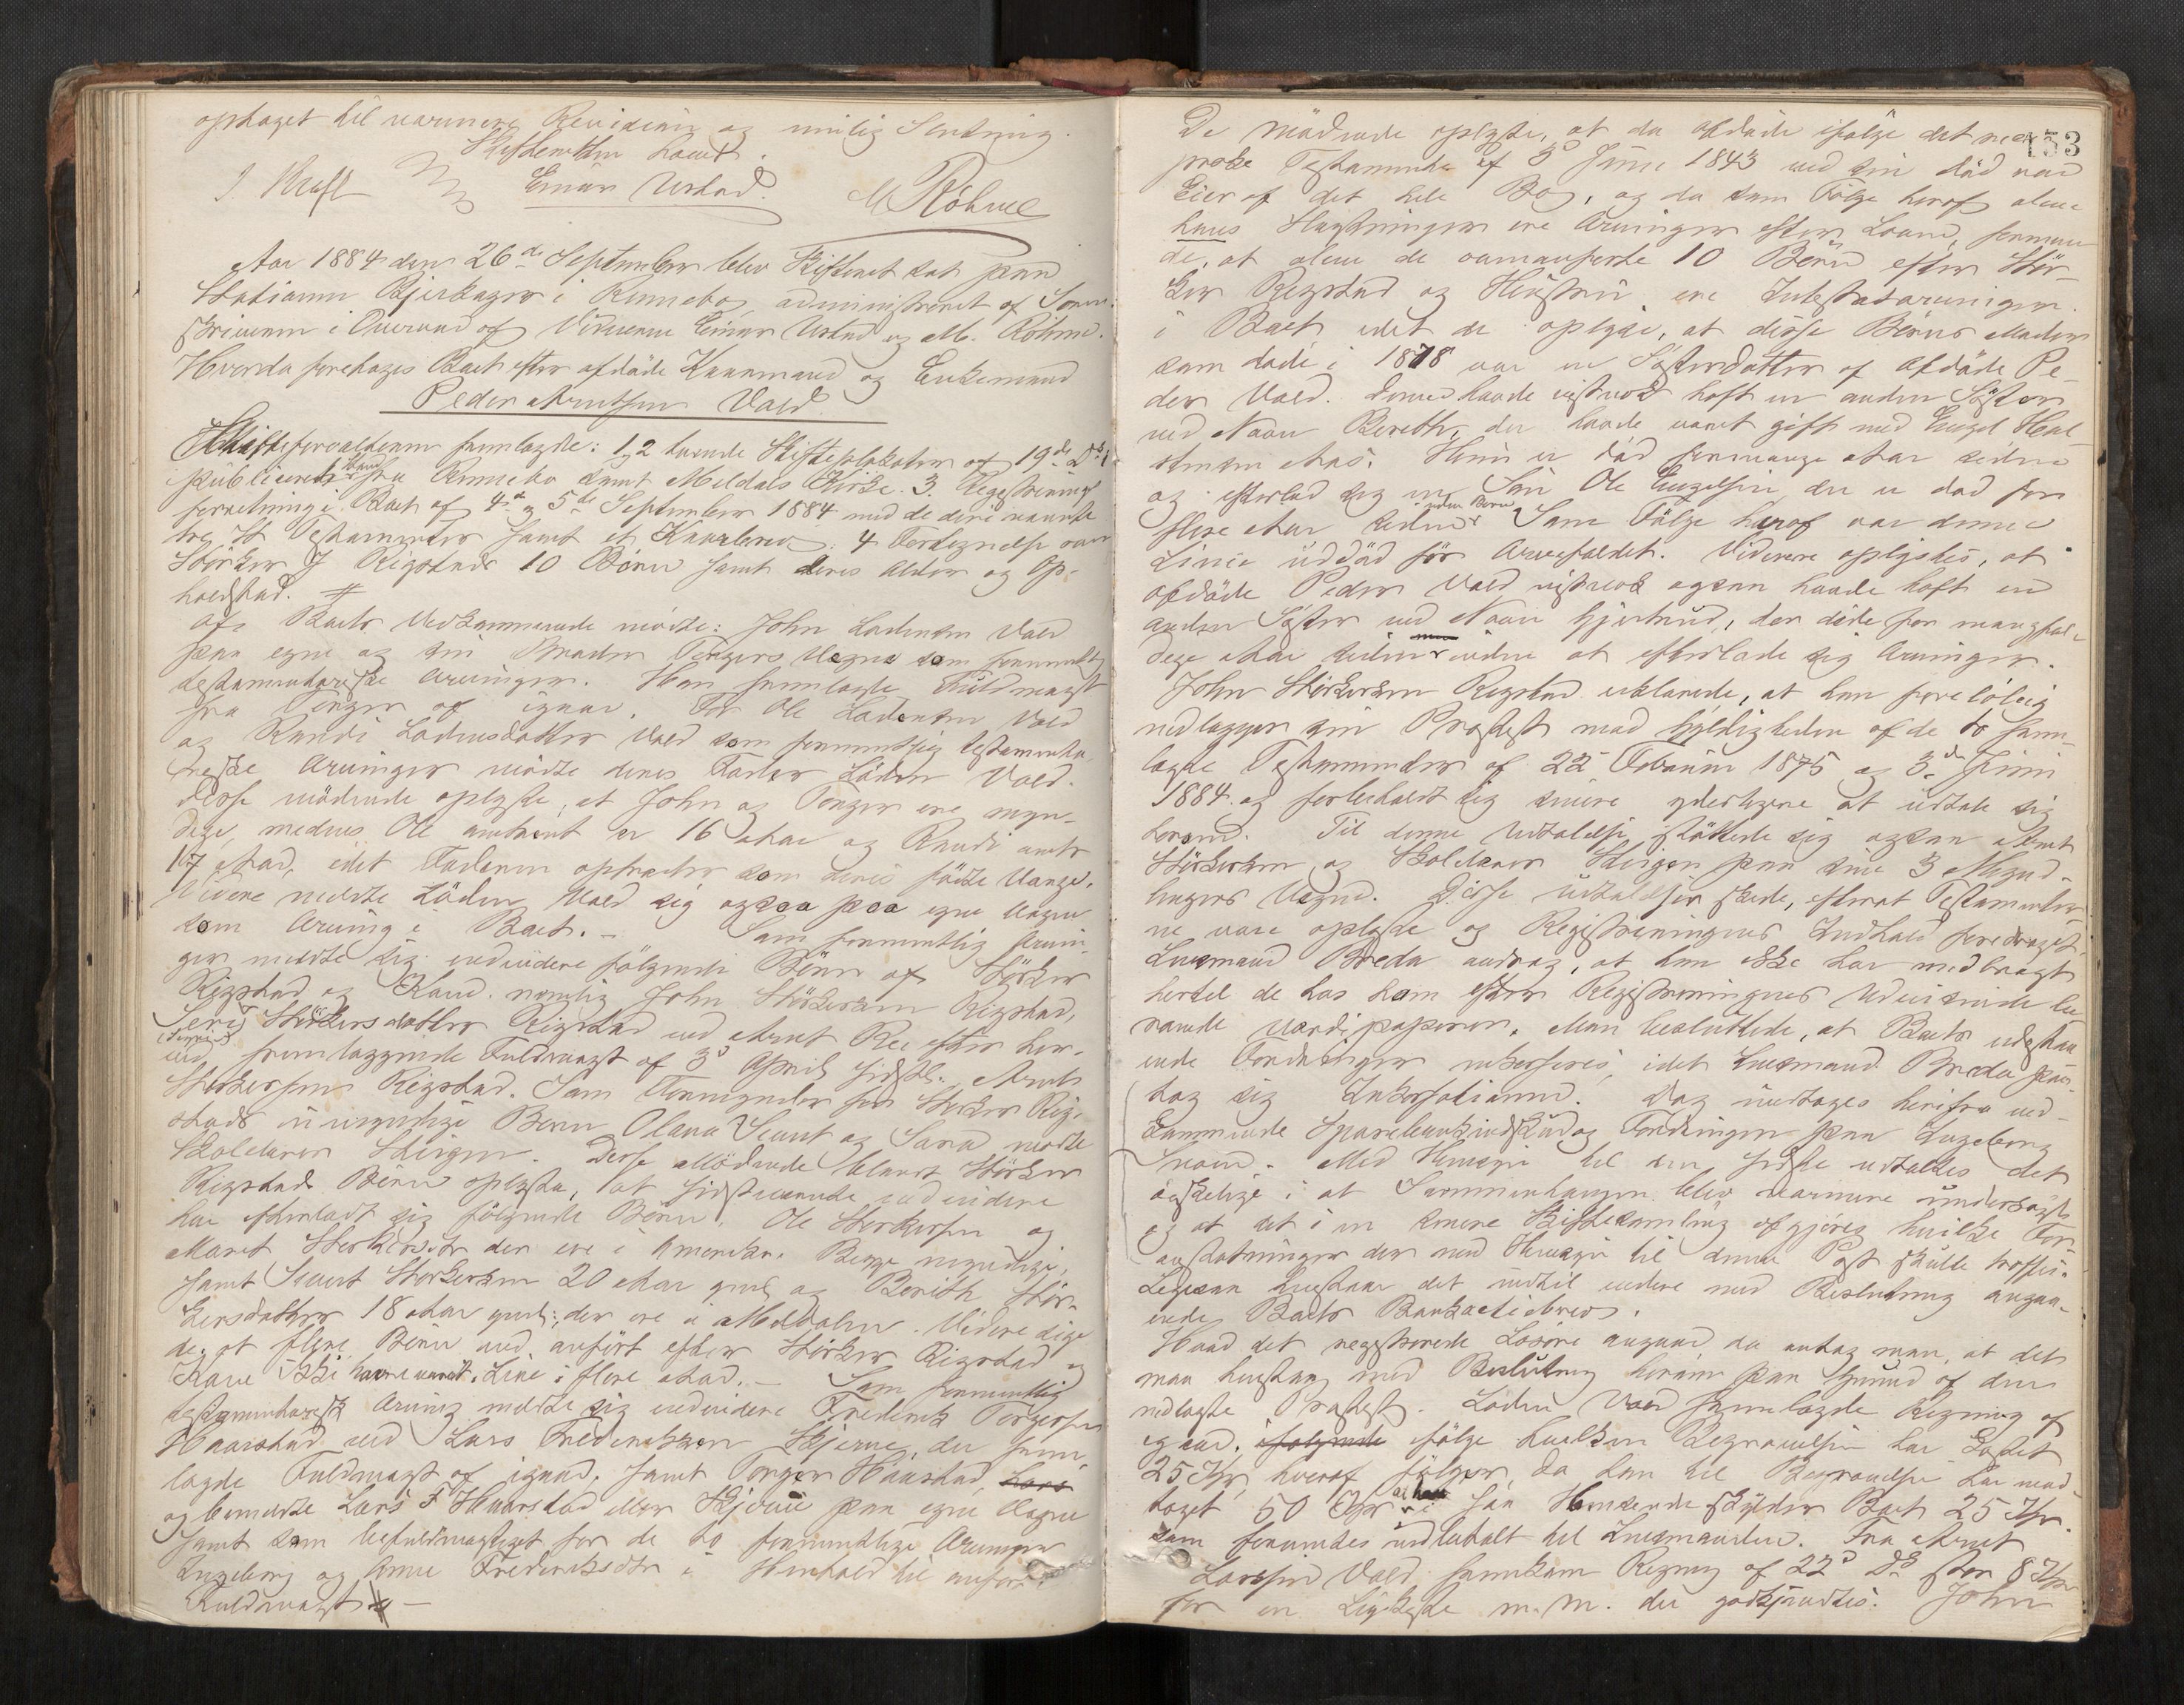 optaget til nærmere Revidering og endelig Slutning.
Skifteretten hævet.
J. Kraft Einar Urstad. M Röhme
Aar 1884 den 26de September blev Skifteret sat paa
Stationen Bjerkager i Rennebo, administreret af Soren-
skriveren i Overvær af Vidnerne Einar Urstad og M. Röhme.
Hvorda foretoges Boet efter afdöde Kaarmand og Enkemand
Peder Arntsen Vold.
Skifteforvalteren fremlagde: 1, 2 tvende Skifteplakater af 19de Ds
publicerede fra Rennebo samt Meldals Kirke. 3. Registrerings
forretning i Boet af 4de og 5de September 1884 med de deri nævnte
tre St Testamenter samt et Kaarbrev. 4 Fortegnelse over
Störker J Rigstads 10 Börn samt deres Alder og Op-
holdsted.
Af Boets Vedkommende mödte: John Lodensen Vold
paa egne og sin Broder Torgers Vegne som formentlig
testamentariske Arvinger. Han fremlagde Fuldmagt
fra Torger af igaar. For Ole Lodensen Vold
og Randi Lodensdatter Vold som formentlig testamenta-
riske Arvinger mödte deres Fader Loden Vold.
Disse mödende oplyste, at John og Torger ere myn-
dige, medens Ole omtrent er 16 Aar og Randi omtr
17 Aar, idet Faderen optræder som deres födte Værge.
Videre meldte Loden Vold sig ogsaa paa egne Vegne
som Arving i Boet. – Som formentlig Arvin-
ger meldte sig endvidere fölgende Börn af Störker
Rigstad og Kone nemlig John Störkersen Rigstad,
Siri Störkersdatter Rigstad ved Arnt Ree efter her-
ved fremlæggende Fuldmagt af 3d April sidstl. Arnt
Störkersen Rigstad. Som Formynder for Störker Rig-
stads umyndige Börn Olava Sivert og Sara mödte
Skolelærer Steigen. Disse Mödende blandt Störker
Rigstads Börn oplyste, at sidstnævnte endvidere
har efterladt sig fölgende Börn: Ole Störkersen og
Maret Störkersdtr der ere i Amerika. Begge myndige,
samt Sivert Störkersen 20 Aar gml og Berith Stör-
kersdatter 18 Aar gml:, der ere i Meldalen. Videre sige
de, at flere Börn end anfört efter Störker Rigstad og
Kone ikke have været i Live i flere Aar. – Som formentlig
testamentarisk Arving meldte sig endvidere Frederik Torgersen
Haarstad ved Lars Frederiksen Skjerve, der frem-
lagde Fuldmagt af igaar, samt Torger Haarstad,
og bemeldte Lars F Haarstad eller Skjerve paa egne Vegne
samt som befuldmægtiget for de to formentlige Arvinger
Ingeborg og Anne Frederiksdtr i Henhold til anförte
Fuldmagt. –
153
De mödende oplyste, at da Afdöde ifölge det
Testamente af 3d Juni 1843 ved sin död var
Eier af det hele Bo, og da som Fölge heraf alene
hans Slægtninger ere Arvinger efter Loven, formene
de, at alene de ovenanförte 10 Börn efter Stör-
ker Rigstad og Hustru ere Intestatarvinger
i Boet, idet de oplyse, at disse Börns Moder
som döde i 1878 var en Sösterdatter af Afdöde Pe-
der Vold. Denne havde vistnok haft en anden Söster
ved Navn Berethe, der havde været gift med Engel Hal-
storsen Aas. Hun er död for mange Aar siden
og efterlod sig en Sön Ole Engelsen, der er död for
flere Aar siden uden Börn. Som Fölge heraf var denne
Linie uddöd för Arvefaldet. Videre oplystes, at
afdöde Peder Vold vistnok ogsaa havde haft en
anden Söster ved Navn Gjertrud, der döde for mangfol-
dige Aar siden uden at efterlade sig Arvinger.
John Störkersen Rigstad erklærede, at han forelöbig
nedlægger sin Protest mod Gyldigheden af de to frem-
lagte Testamenter af 22d Februar 1875 og 3d Juni
1884 og forbeholdt sig senere yderligere at udtale sig
herom. Til denne Udtalelse sluttede sig ogsaa Arnt
Störkersen og Skolelærer Steigen paa sine 3 Mynd-
lingers Vegne. Disse Udtalelser skede, efterat Testamenter-
ne vare oplæste og Registreringens Indhold foredraget.
Lensmand Breda androg, at han ikke har medbragt
hertil de hos ham efter Registreringens Udvisende be-
roende Værdipapirer. Man besluttede, at Boets udestaa-
ende Fordringer inkasseres, idet Lensmand Breda paa-
tog sig Inkassationen. Dog undtages herifra ved-
kommende Sparebankindskud og Fordringen paa Ingeborg
Med Hensyn til den sidste udtaltes det
önskelige i at Sammenhængen blev nærmere undersögt,
og at det i en senere Skiftesamling afgjöres hvilke For-
anstaltninger der med Hensyn til denne Post skulde træffes.
Ligesaa henstaar det indtil videre med Beslutning angaa-
ende Boets Bankactiebrev.
Hvad det registrerede Lösöre angaar, da antog man, at det
maa henstaa med Beslutning herom paa Grund af den
nedlagte Protest. Loden Vold fremlagde Regning af
igaar, ifölge hvilken Begravelsen har kostet
25 Kr, hvoraf fölger, da han til Begravelse har mod-
taget 50 Kr at han saa Henseende skylder Boet 25 Kr.
som forventes indbetalt til Lensmanden. Fra Arnt
Larsen Vold fremkom Regning af 22d Ds stor 8 Kr
for en Ligkiste m.m. der godkjendtes. John